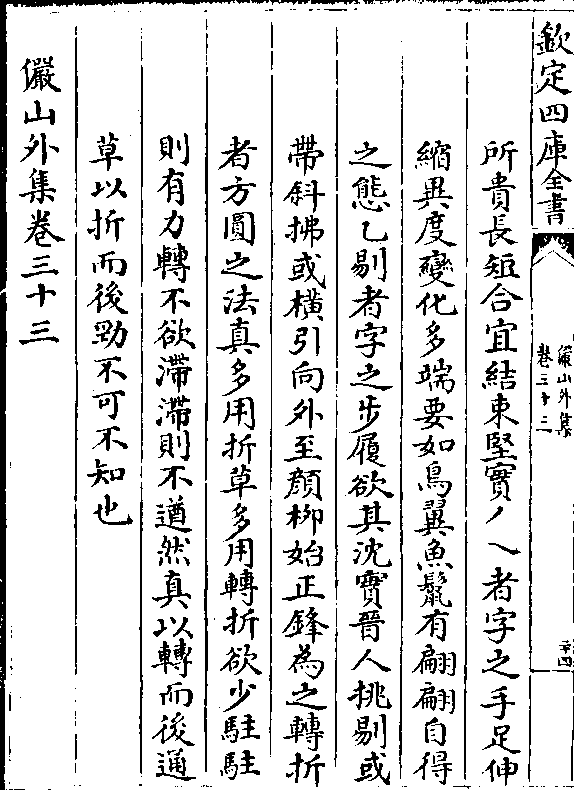 欽定四庫全書
儼山外集
卷三十三
二十四
所貴長短合宜結束堅實丿乀者字之手足伸
縮異度變化多端要如鳥翼魚鬛有翩翩自得
之態乙剔者字之步履欲其沈實晉人挑剔或
帶斜拂或橫引向外至顔栁始正鋒為之轉折
者方圓之法真多用折草多用轉折欲少駐駐
則有力轉不欲滯滯則不遒然真以轉而後通
草以折而後勁不可不知也
儼山外集卷三十三